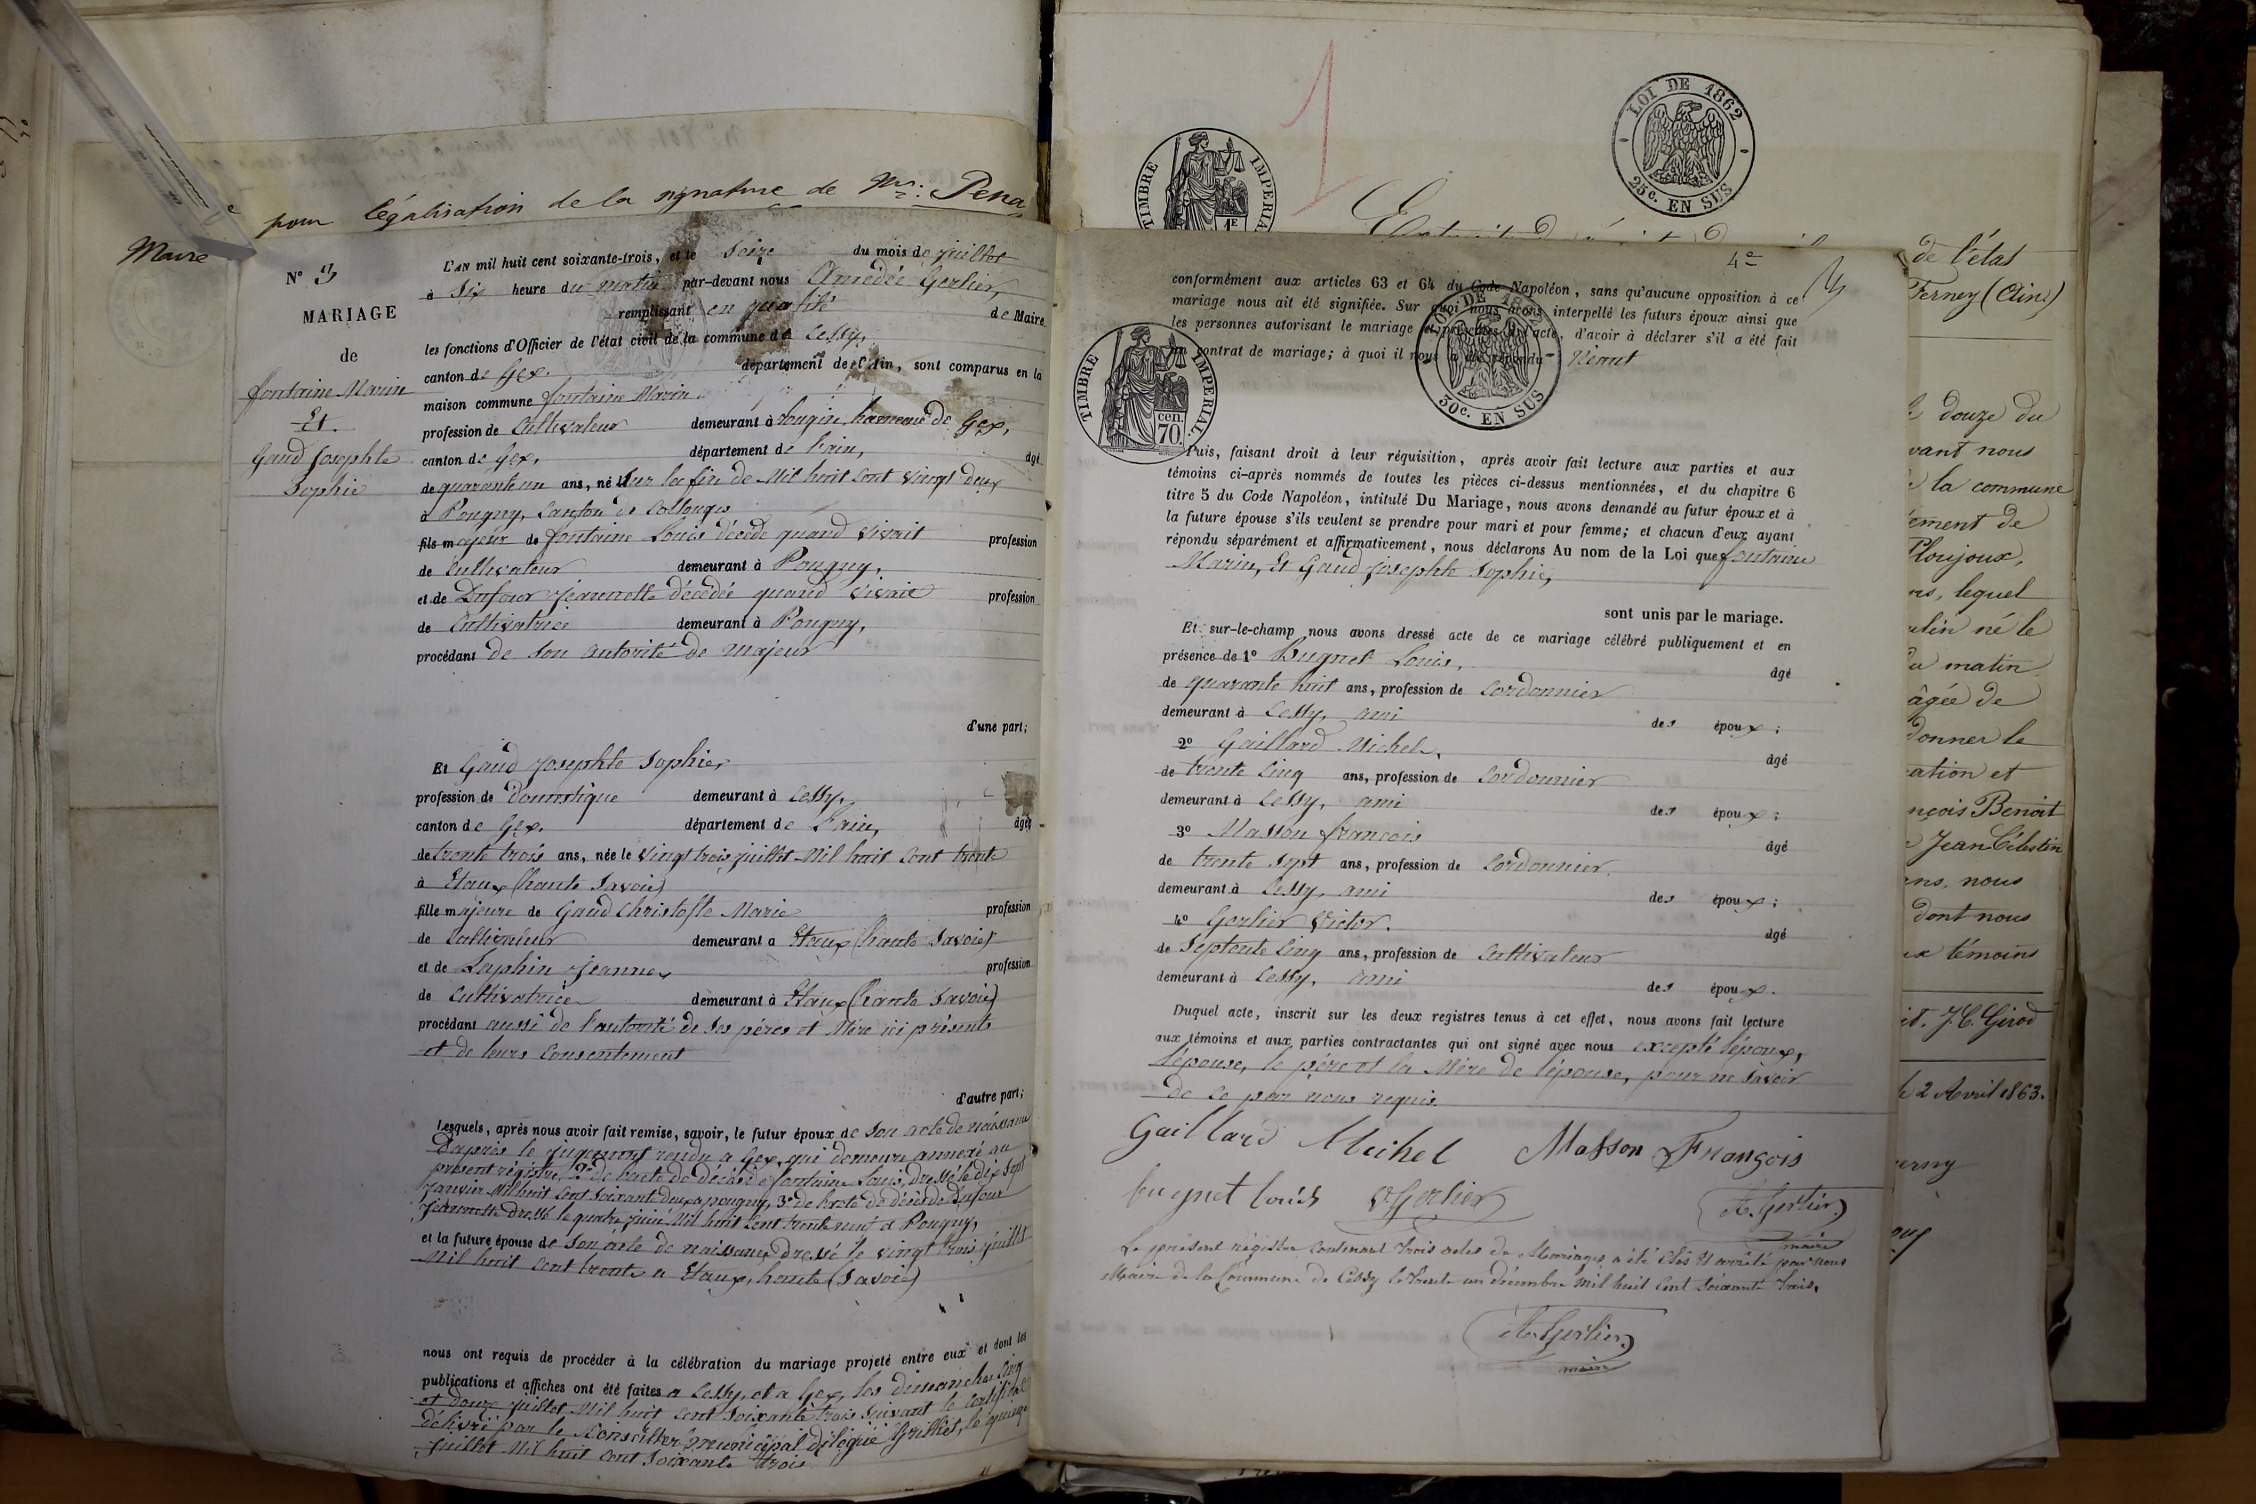 pour légalisation de la signature de Mr. Pena
Maire
N° 3
MARIAGE
de
fontaine Marin
Et
Gaud Josephte
Sophie
L'AN mil huit cent soixante-trois, et le Seize du mois de Juillet
à Six heure du matin par-devant nous Amédée Gerlier,
remplissant en qualité de Maire
les fonctions d'Officier de l'état civil de la commune de Cessy,
canton de Gex. département de l'Ain, sont comparus en la
maison commune fontaine Marin
profession de Cultivateur demeurant à hameau de Gex,
canton de Gex, département de l'ain, âgé
de quarante un ans, né Sur la fin de Mil huit Cent Vingt deux
à Pougny, Canton de Collonges
fils majeur de fontaine Louis décédé quand vivait profession
de Cultivateur demeurant à Pougny,
et de Dufour Jeannette décédée quand vivait profession
de Cultivatrice demeurant à Pougny,
procédant de Son autorité de majeur
d'une part;
Et Gaud Josephte Sophie,
profession de domestique demeurant à Cessy,
canton de Gex. département de l'ain, âgée
de trente trois ans, née le Vingt trois juillet Mil huit Cent trente
à Etaux (haute Savoie)
fille majeure de Gaud Christofle Marie profession
de Cultivateur demeurant à Etaux (haute Savoie)
et de Jeanne profession
de Cultivatrice demeurant à Etaux (haute Savoie)
procédant aussi de l'autorité de Ses pères et Mère ici présents
et de leurs Consentement
d'autre part;
Lesquels, après nous avoir fait remise, savoir, le futur époux de Son acte de naissance
D'après le Jugement rendu a Gex, qui demeure annexé au
présent régistre, 2° de l'acte de décès de fontaine Louis, dressé le dix Sept
Janvier Mil huit Cent Soixante deux a pougny, 3° de l'acte de décès de Dufour
Jeannette dressé le quatre juin Mil huit Cent trente neuf a Pougny,
et la future épouse de Son acte de naissance dressé le vingt trois juillet
Mil huit Cent trente a Etaux, haute (Savoie)
nous ont requis de procéder à la célébration du mariage projeté entre eux et dont les
publications et affiches ont été faites a Cessy, et a Gex, les dimanches Cinq
et douze Juillet Mil huit Cent Soixante trois Suivant le Certificat
délivré par le Conseiller municipal délégué le quinze
Juillet Mil huit Cent Soixante trois
1
TIMBRE IMPERIAL
LOI DE 1862
25c. EN SUS
4e
conformément aux articles 63 et 64 du Code Napoléon, sans qu'aucune opposition à ce
mariage nous ait été signifiée. Sur quoi nous avons interpellé les futurs époux ainsi que
les personnes autorisant le mariage et présentes à l'acte, d'avoir à déclarer s'il a été fait
un contrat de mariage; à quoi il nous a été répondu Néant
TIMBRE IMPERIAL.
cen. 70.
LOI DE 1862
30c. EN SUS
Puis, faisant droit à leur réquisition, après avoir fait lecture aux parties et aux
témoins ci-après nommés de toutes les pièces ci-dessus mentionnées, et du chapitre 6
titre 5 du Code Napoléon, intitulé Du Mariage, nous avons demandé au futur époux et à
la future épouse s'ils veulent se prendre pour mari et pour femme; et chacun d'eux ayant
répondu séparément et affirmativement, nous déclarons Au nom de la Loi que fontaine
Marin, Et Gaud Josephte Sophie,
sont unis par le mariage.
Et sur-le-champ nous avons dressé acte de ce mariage célébré publiquement et en
présence de 1° Hugnet Louis, âgé
de quarante huit ans, profession de Cordonnier
demeurant à Cessy, ami des époux;
2° Gaillard Michel, âgé
de trente Cinq ans, profession de Cordonnier
demeurant à Cessy, ami des époux;
3° Masson françois âgé
de trente Sept ans, profession de Cordonnier
demeurant à Cessy, ami des époux;
4° Gerlier Victor. âgé
de Septente Cinq ans, profession de Cultivateur
demeurant à Cessy, ami des époux.
Duquel acte, inscrit sur les deux registres tenus à cet effet, nous avons fait lecture
aux témoins et aux parties contractantes qui ont signé avec nous excepté l'époux,
l'épouse, le père et la Mère de l'épouse, pour ne Savoir
de Ce par nous requis.
Gaillard Meihel Masson François
hugnet louis V. Gerlier A. Gerlier
maire
Le présent régistre Contenant trois actes de Mariages a été Clos et arrêté par nous
Maire de la Commune de Cessy le trente un décembre Mil huit Cent Soixante trois,
A. Gerlier
maire
de l'état
Ferney (Ain)
douze du
vant nous
la commune
ement de
Ploujoux,
lequel
né le
du matin
âgée de
donner le
ation et
nçois Benoît
Jean Célestin
ans, nous
dont nous
témoins
J. C. Girod
le 2 Avril 1863.